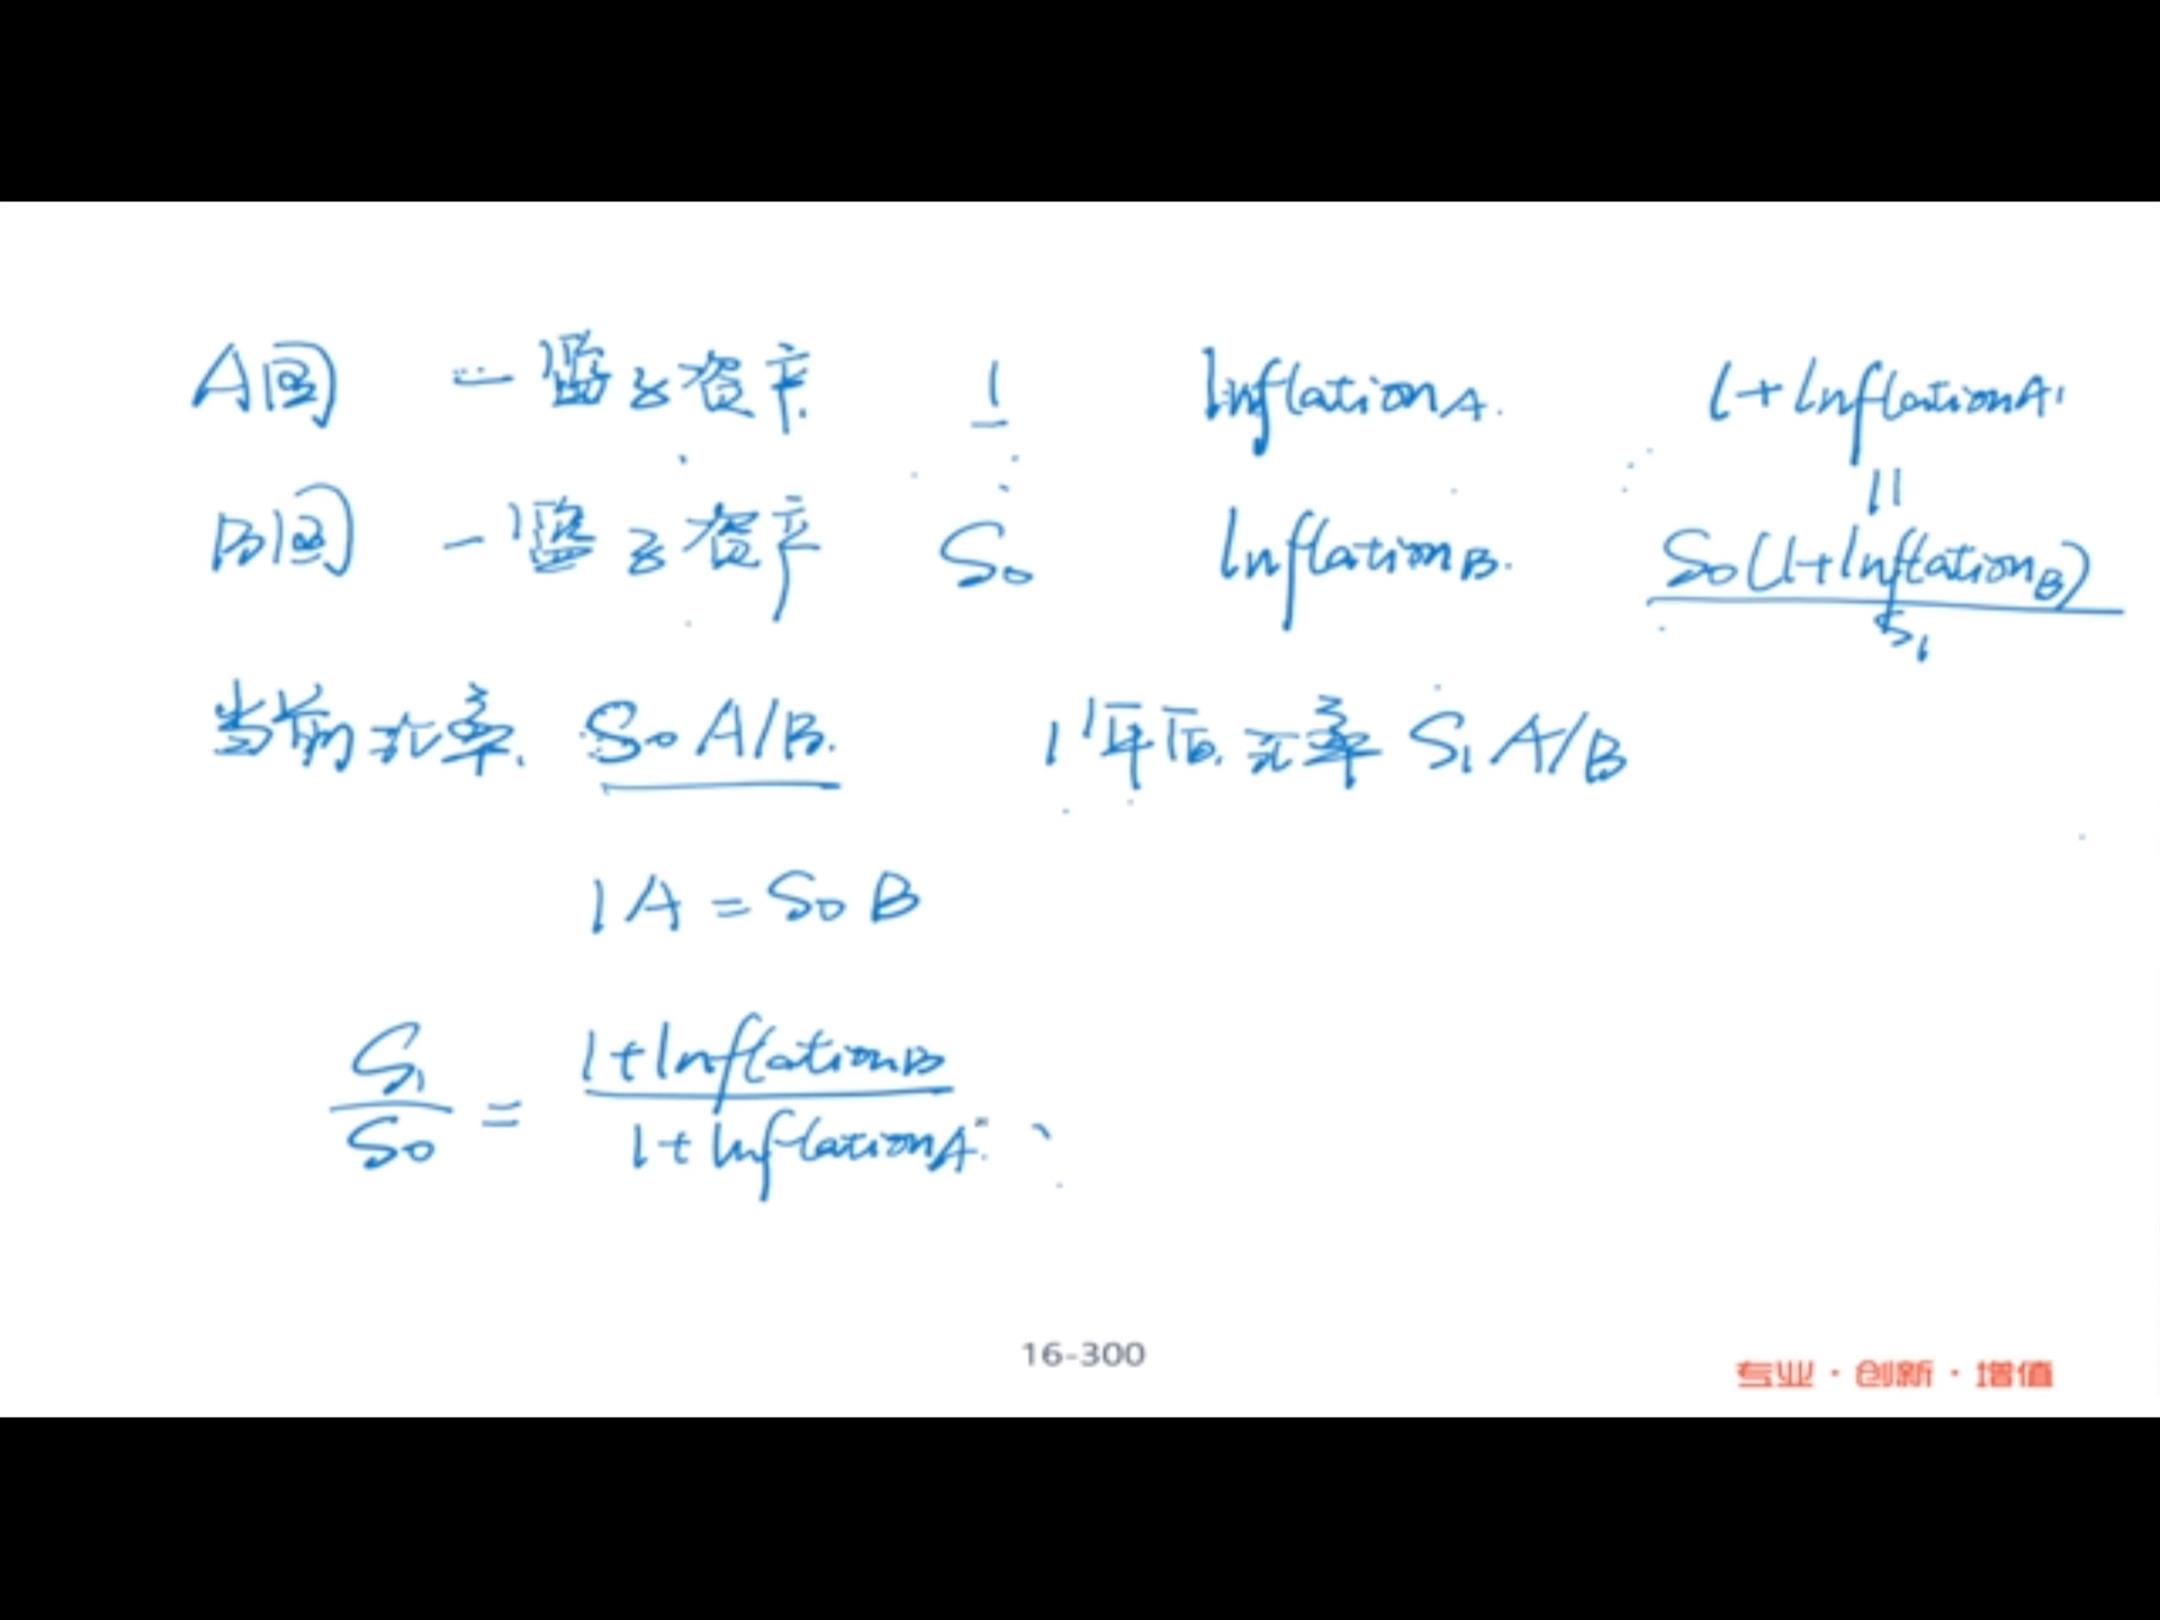 A国 一篮子资产 1 InflationA. 1+InflationA
||
B国 一篮子资产 S0 InflationB. S0(1+InflationB)
S1
当前汇率. S0 A/B. 1年后.汇率 S1 A/B
1A = S0 B
S1/S0 = 1+InflationB / 1+InflationA
16-300
专业·创新·增值